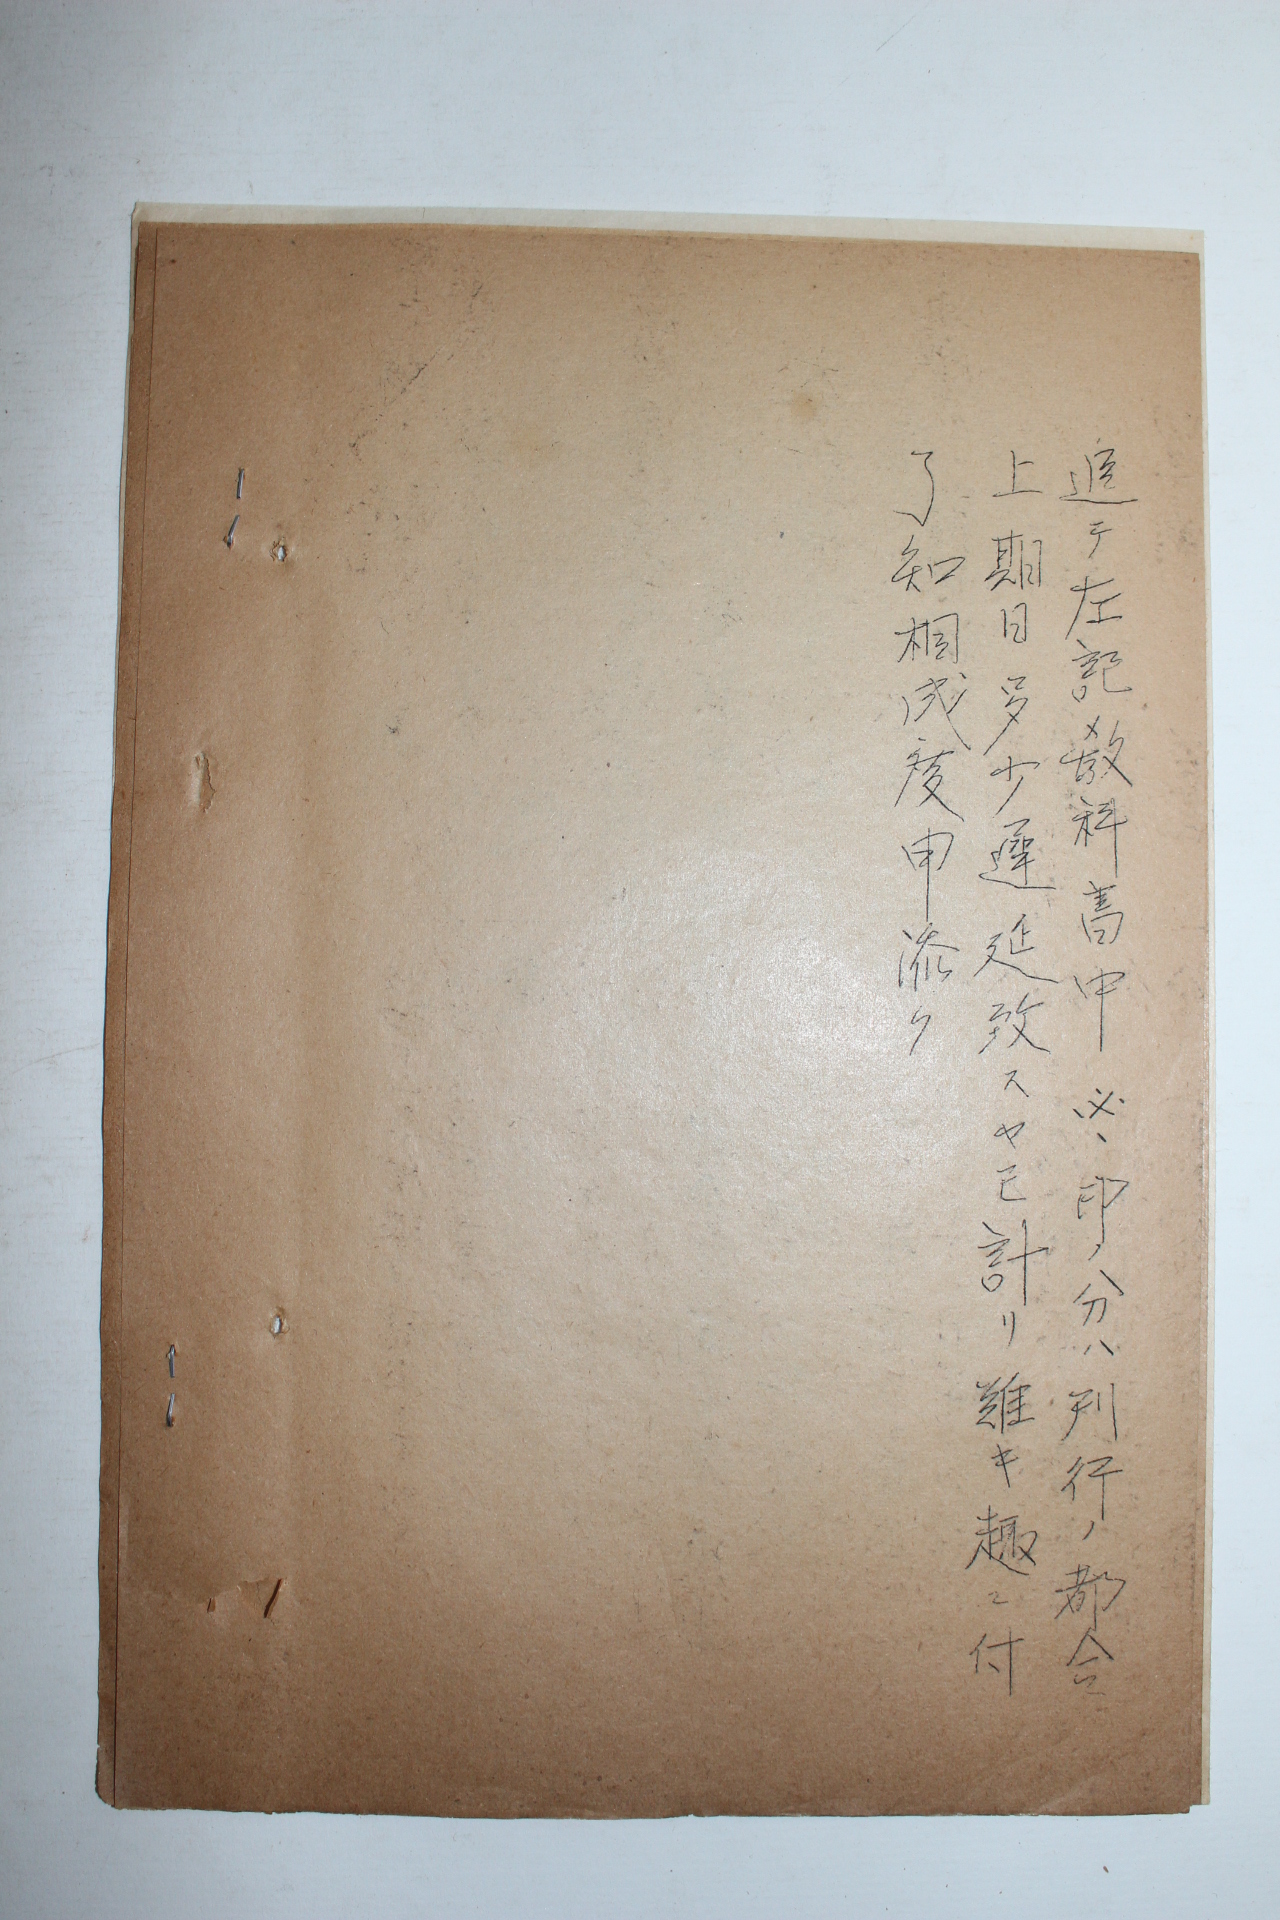 追テ左記教科書中 必ヽ印ノ分ハ刊行ノ都合
上期日多少遅延致スヤモ計リ難キ趣ニ付
了知相成度申添フ